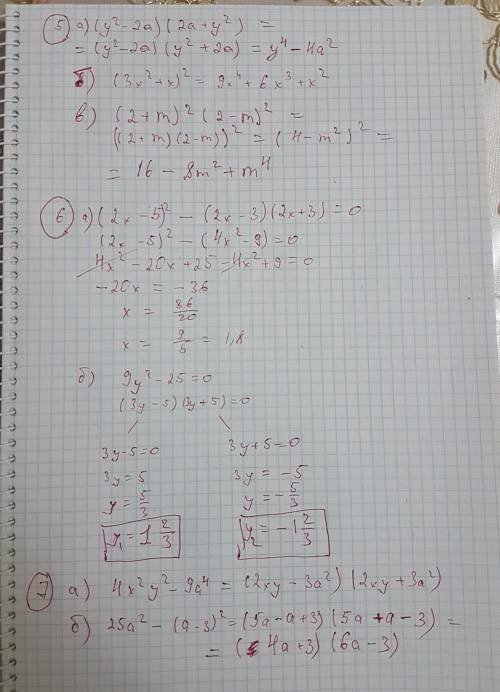 5 а) (y²-2a)(2a+y²) =
= (y²-2a)(y²+2a) = y⁴-4a²
б) (3x²+x)² = 9x⁴+6x³+x²
в) (2+m)² (2-m)² =
((2+m)(2-m))² = (4-m²)² =
= 16 - 8m²+m⁴
6 а) (2x-5)² - (2x-3)(2x+3)=0
(2x-5)² - (4x²-9)=0
4x²-20x+25-4x²+9=0
-20x = -36
x = 36/20
x = 9/5 = 1,8
б) 9y²-25=0
(3y-5)(3y+5)=0
3y-5=0 3y+5=0
3y=5 3y = -5
y=5/3 y=-5/3
y₁=1 2/3 y₂=-1 2/3
7 а) 4x²y²-9a⁴ = (2xy-3a²)(2xy+3a²)
б) 25a²-(a-3)²=(5a-a+3)(5a+a-3)=
= (4a+3)(6a-3)